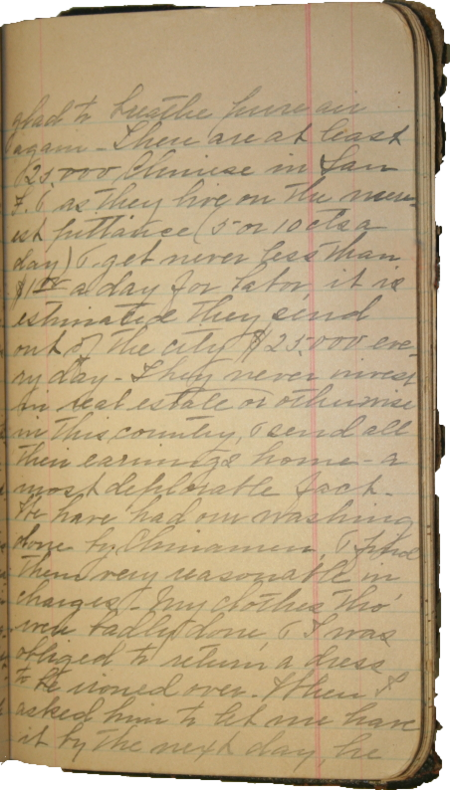 glad to breathe pure air
again - There are at least
25,000 Chinese in San
F. & as they live on the mere-
est pittance (5 or 10 cts a
day) & get never less than
$1.00 a day for labor, it is
estimated they send
out of the city $25.000 eve-
ry day - They never invest
in real estate or otherwise
in this country, & send all
their earnings home - a
most deplorable fact.
We have had our washing
done by Chinamen, & find
them very reasonable in
charges - My clothes tho'
were badly done & I was
obliged to return a dress
to be ironed over. When I
asked him to let me have
it by the next day, he